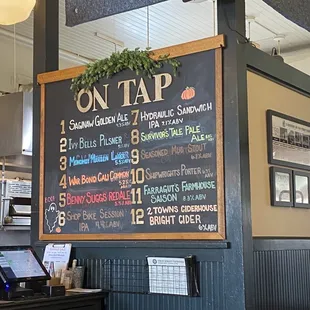 ON TAP
ON TAP
1 SAGINAW GOLDEN ALE
2 IVY BELLS PILSNER
3
4 WAR BOND CALI COMMON
5 BENNY SUGGS REDALE
6 SHOP BIKE SESSION
IPA
7 HYDRAULIC SANDWICH
IPA
8 SURVIVOR'S TALE PALE
ALE
9 SEASONED STOUT
10 SHIPWRIGHTS PORTER
11 FARRAGUTS FARMHOUSE
SAISON
12 2 TOWNS CIDERHOUSE
BRIGHT CIDER
ON TAP